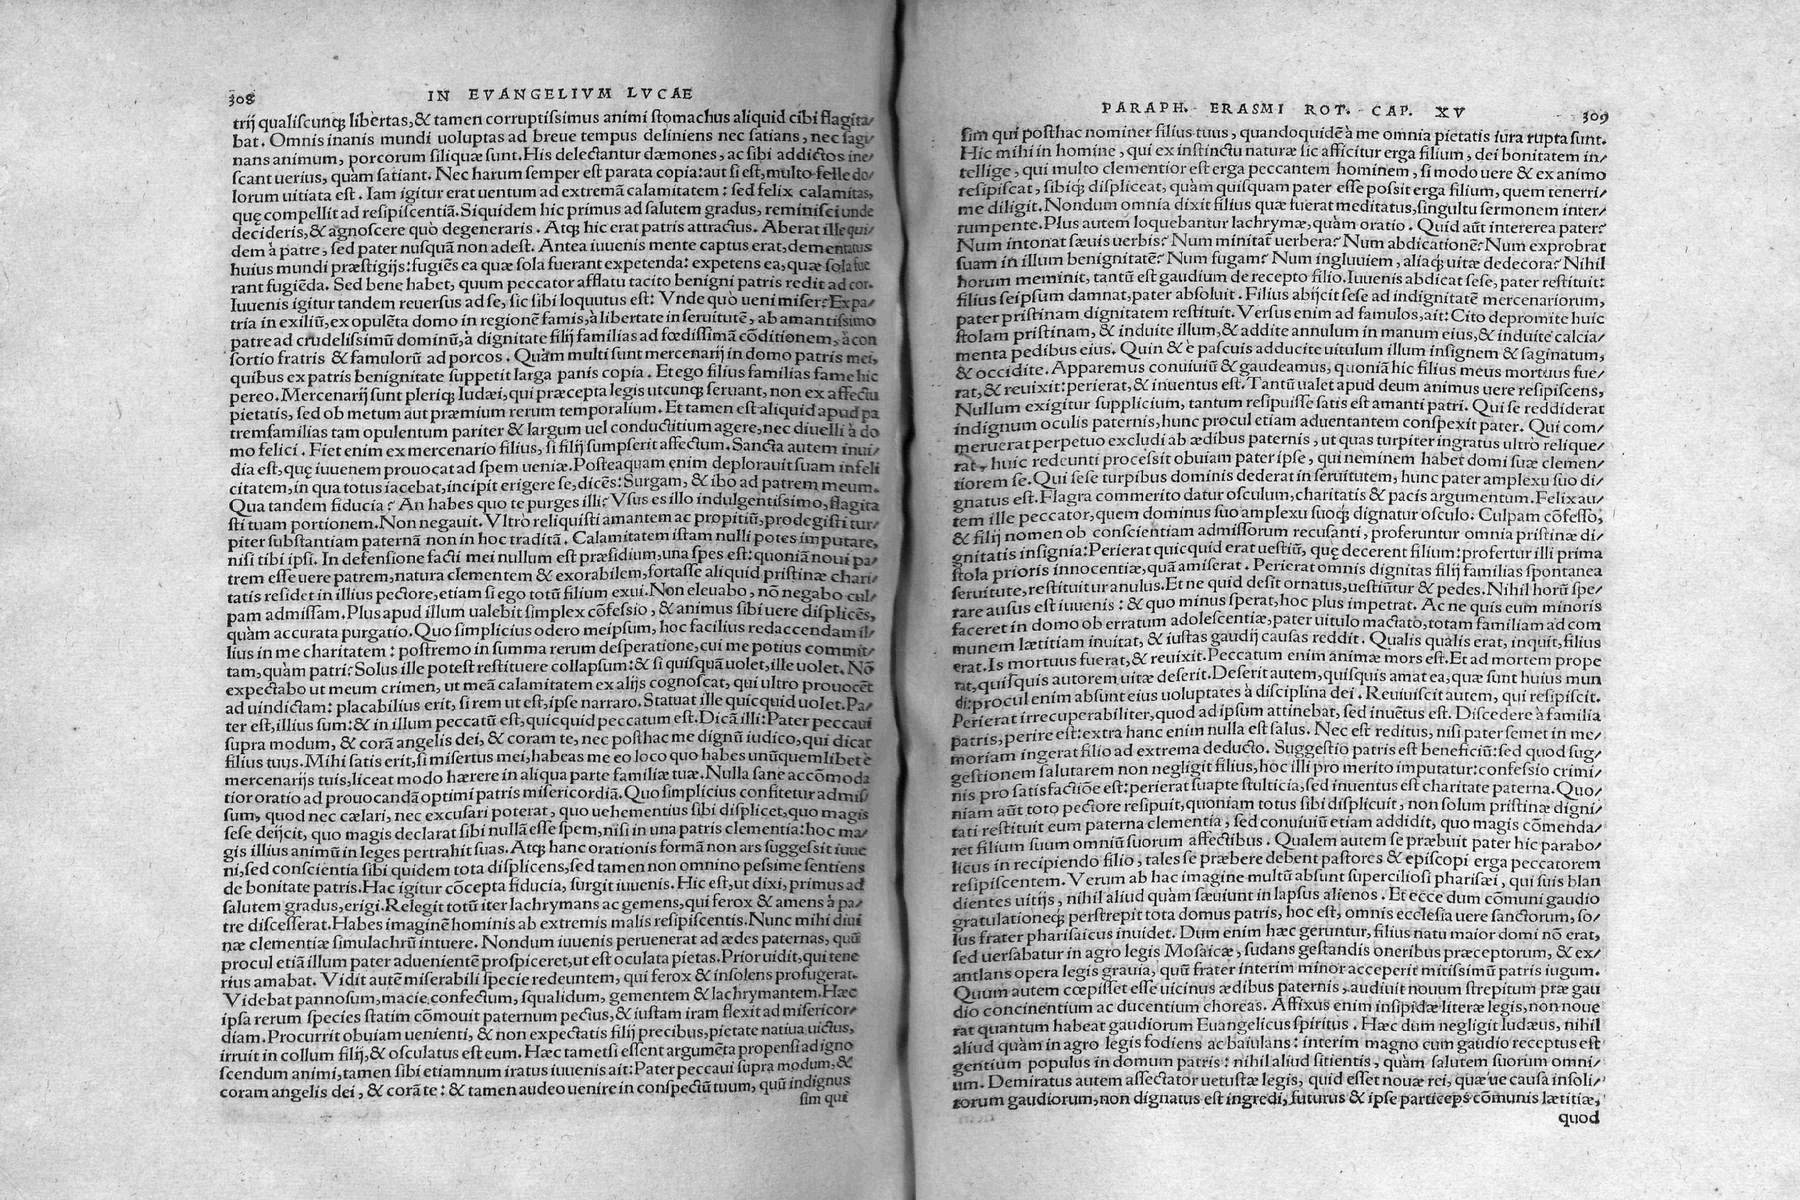 308
IN EVANGELIVM LVCAE
trij qualiſcunq; libertas,& tamen corruptiſsimus animi ſtomachus aliquid cibi flagita/
bat. Omnis inanis mundi uoluptas ad breue tempus deliniens nec ſatians, nec ſagi/
nans animum, porcorum ſiliquæ ſunt. His delectantur dæmones, ac ſibi addictos ine/
ſcant uerius, quàm ſatiant. Nec harum ſemper eſt parata copia: aut ſi eſt, multo felle do/
lorum uitiata eſt. Iam igitur erat uentum ad extremã calamitatem: ſed felix calamitas,
quę compellit ad reſipiſcentiã. Siquidem hic primus ad ſalutem gradus, reminiſci unde
decideris, & agnoſcere quò degeneraris. Atq; hic erat patris attractus. Aberat ille qui/
dem à patre, ſed pater nuſquã non adeſt. Antea iuuenis mente captus erat, dementatus
huius mundi præſtigijs: fugiẽs ea quæ ſola fuerant expetenda: expetens ea, quæ ſola fue
rant fugiẽda. Sed bene habet, quum peccator afflatu tacito benigni patris redit ad cor.
Iuuenis igitur tandem reuerſus ad ſe, ſic ſibi loquutus eſt: Vnde quò ueni miſer? Ex pa/
tria in exiliũ, ex opulẽta domo in regionẽ famis, à libertate in ſeruitutẽ, ab amantiſsimo
patre ad crudeliſsimũ dominũ, à dignitate filij familias ad fœdiſsimã cõditionem, à con
ſortio fratris & famulorũ ad porcos. Quàm multi ſunt mercenarij in domo patris mei,
quibus ex patris benignitate ſuppetit larga panis copia. Et ego filius familias fame hic
pereo. Mercenarij ſunt pleriq; Iudæi, qui præcepta legis utcunq; ſeruant, non ex affectu
pietatis, ſed ob metum aut præmium rerum temporalium. Et tamen eſt aliquid apud pa
tremfamilias tam opulentum pariter & largum uel conductitium agere, nec diuelli à do
mo felici. Fiet enim ex mercenario filius, ſi filij ſumpſerit affectum. Sancta autem inui/
dia eſt, quę iuuenem prouocat ad ſpem ueniæ. Poſteaquam enim deplorauit ſuam infeli
citatem, in qua totus iacebat, incipit erigere ſe, dicẽs: Surgam, & ibo ad patrem meum.
Qua tandem fiducia? An habes quo te purges illi? Vſus es illo indulgentiſsimo, flagita
ſti tuam portionem. Non negauit. Vltrò reliquiſti amantem ac propitiũ, prodegiſti tur/
piter ſubſtantiam paternã non in hoc traditã. Calamitatem iſtam nulli potes imputare,
niſi tibi ipſi. In defenſione facti mei nullum eſt præſidium, una ſpes eſt: quoniã noui pa/
trem eſſe uere patrem, natura clementem & exorabilem, fortaſſe aliquid priſtinæ chari/
tatis reſidet in illius pectore, etiam ſi ego totũ filium exui. Non eleuabo, nõ negabo cul/
pam admiſſam. Plus apud illum ualebit ſimplex cõfeſsio, & animus ſibi uere diſplicẽs,
quàm accurata purgatio. Quo ſimplicius odero meipſum, hoc facilius redaccendam il/
lius in me charitatem: poſtremo in ſumma rerum deſperatione, cui me potius commit/
tam, quàm patri? Solus ille poteſt reſtituere collapſum: & ſi quiſquã uolet, ille uolet. Nõ
expectabo ut meum crimen, ut meã calamitatem ex alijs cognoſcat, qui ultro prouocẽt
ad uindictam: placabilius erit, ſi rem ut eſt, ipſe narraro. Statuat ille quicquid uolet. Pa/
ter eſt, illius ſum: & in illum peccatũ eſt, quicquid peccatum eſt. Dicã illi: Pater peccaui
ſupra modum, & corã angelis dei, & coram te, nec poſthac me dignũ iudico, qui dicar
filius tuus. Mihi ſatis erit, ſi miſertus mei, habeas me eo loco quo habes unũquemlibet è
mercenarijs tuis, liceat modo hærere in aliqua parte familiæ tuæ. Nulla ſane accõmoda
tior oratio ad prouocandã optimi patris miſericordiã. Quo ſimplicius confitetur admiſ
ſum, quod nec cælari, nec excuſari poterat, quo uehementius ſibi diſplicet, quo magis
ſeſe deijcit, quo magis declarat ſibi nullã eſſe ſpem, niſi in una patris clementia: hoc ma/
gis illius animũ in leges pertrahit ſuas. Atq; hanc orationis formã non ars ſuggeſsit iuue
ni, ſed conſcientia ſibi quidem tota diſplicens, ſed tamen non omnino peſsime ſentiens
de bonitate patris. Hac igitur cõcepta fiducia, ſurgit iuuenis. Hic eſt, ut dixi, primus ad
ſalutem gradus, erigi. Relegit totũ iter lachrymans ac gemens, qui ferox & amens à pa/
tre diſceſſerat. Habes imaginẽ hominis ab extremis malis reſipiſcentis. Nunc mihi diui
næ clementiæ ſimulachrũ intuere. Nondum iuuenis peruenerat ad ædes paternas, quũ
procul etiã illum pater aduenientẽ proſpiceret, ut eſt oculata pietas. Prior uidit, qui tene
rius amabat. Vidit autẽ miſerabili ſpecie redeuntem, qui ferox & inſolens profugerat.
Videbat pannoſum, macie confectum, ſqualidum, gementem & lachrymantem. Hæc
ipſa rerum ſpecies ſtatim cõmouit paternum pectus, & iuſtam iram flexit ad miſericor/
diam. Procurrit obuiam uenienti, & non expectatis filij precibus, pietate natiua uictus,
irruit in collum filij, & oſculatus eſt eum. Hæc tametſi eſſent argumẽta propenſi ad igno
ſcendum animi, tamen ſibi etiamnum iratus iuuenis ait: Pater peccaui ſupra modum, &
coram angelis dei, & corã te: & tamen audeo uenire in conſpectũ tuum, quũ indignus
ſim qui
PARAPH. ERASMI ROT. CAP. XV
309
ſim qui poſthac nominer filius tuus, quandoquidẽ à me omnia pietatis iura rupta ſunt.
Hic mihi in homine, qui ex inſtinctu naturæ ſic afficitur erga filium, dei bonitatem in/
tellige, qui multo clementior eſt erga peccantem hominem, ſi modo uere & ex animo
reſipiſcat, ſibiq; diſpliceat, quàm quiſquam pater eſſe poſsit erga filium, quem tenerri/
me diligit. Nondum omnia dixit filius quæ fuerat meditatus, ſingultu ſermonem inter/
rumpente. Plus autem loquebantur lachrymæ, quàm oratio. Quid aũt interea pater?
Num intonat ſæuis uerbis? Num minitat̃ uerbera? Num abdicationẽ? Num exprobrat
ſuam in illum benignitatẽ? Num fugam? Num ingluuiem, aliaq; uitæ dedecora? Nihil
horum meminit, tantũ eſt gaudium de recepto filio. Iuuenis abdicat ſeſe, pater reſtituit:
filius ſeipſum damnat, pater abſoluit. Filius abijcit ſeſe ad indignitatẽ mercenariorum,
pater priſtinam dignitatem reſtituit. Verſus enim ad famulos, ait: Cito depromite huic
ſtolam priſtinam, & induite illum, & addite annulum in manum eius, & induite calcia/
menta pedibus eius. Quin & è paſcuis adducite uitulum illum inſignem & ſaginatum,
& occidite. Apparemus conuiuiũ & gaudeamus, quoniã hic filius meus mortuus fue/
rat, & reuixit: perierat, & inuentus eſt. Tantũ ualet apud deum animus uere reſipiſcens,
Nullum exigitur ſupplicium, tantum reſipuiſſe ſatis eſt amanti patri. Qui ſe reddiderat
indignum oculis paternis, hunc procul etiam aduentantem conſpexit pater. Qui com/
meruerat perpetuo excludi ab ædibus paternis, ut quas turpiter ingratus ultrò relique/
rat, huic redeunti proceſsit obuiam pater ipſe, qui neminem habet domi ſuæ clemen/
tiorem ſe. Qui ſeſe turpibus dominis dederat in ſeruitutem, hunc pater amplexu ſuo di/
gnatus eſt. Flagra commerito datur oſculum, charitatis & pacis argumentum. Felix au/
tem ille peccator, quem dominus ſuo amplexu ſuoq; dignatur oſculo. Culpam cõfeſſo,
& filij nomen ob conſcientiam admiſſorum recuſanti, proferuntur omnia priſtinæ di/
gnitatis inſignia: Perierat quicquid erat ueſtiũ, quę decerent filium: profertur illi prima
ſtola prioris innocentiæ, quã amiſerat. Perierat omnis dignitas filij familias ſpontanea
ſeruitute, reſtituitur anulus. Et ne quid deſit ornatus, ueſtiũtur & pedes. Nihil horũ ſpe/
rare auſus eſt iuuenis: & quo minus ſperat, hoc plus impetrat. Ac ne quis eum minoris
faceret in domo ob erratum adoleſcentiæ, pater uitulo mactato, totam familiam ad com
munem lætitiam inuitat, & iuſtas gaudij cauſas reddit. Qualis qualis erat, inquit, filius
erat. Is mortuus fuerat, & reuixit. Peccatum enim animæ mors eſt. Et ad mortem prope
rat, quiſquis autorem uitæ deſerit. Deſerit autem, quiſquis amat ea, quæ ſunt huius mun
di: procul enim abſunt eius uoluptates à diſciplina dei. Reuiuiſcit autem, qui reſipiſcit.
Perierat irrecuperabiliter, quod ad ipſum attinebat, ſed inuẽtus eſt. Diſcedere à familia
patris, perire eſt: extra hanc enim nulla eſt ſalus. Nec eſt reditus, niſi pater ſemet in me/
moriam ingerat filio ad extrema deducto. Suggeſtio patris eſt beneficiũ: ſed quod ſug/
geſtionem ſalutarem non negligit filius, hoc illi pro merito imputatur: confeſsio crimi/
nis pro ſatisfactiõe eſt: perierat ſuapte ſtulticia, ſed inuentus eſt charitate paterna. Quo/
niam aũt toto pectore reſipuit, quoniam totus ſibi diſplicuit, non ſolum priſtinæ digni/
tati reſtituit eum paterna clementia, ſed conuiuiũ etiam addidit, quo magis cõmenda/
ret filium ſuum omniũ ſuorum affectibus. Qualem autem ſe præbuit pater hic parabo/
licus in recipiendo filio, tales ſe præbere debent paſtores & epiſcopi erga peccatorem
reſipiſcentem. Verum ab hac imagine multũ abſunt ſupercilioſi phariſæi, qui ſuis blan
dientes uitijs, nihil aliud quàm ſæuiunt in lapſus alienos. Et ecce dum cõmuni gaudio
gratulationeq; perſtrepit tota domus patris, hoc eſt, omnis eccleſia uere ſanctorum, ſo/
lus frater phariſaicus inuidet. Dum enim hæc geruntur, filius natu maior domi nõ erat,
ſed uerſabatur in agro legis Moſaicæ, ſudans geſtandis oneribus præceptorum, & ex/
antlans opera legis grauia, quũ frater interim minor acceperit mitiſsimũ patris iugum.
Quum autem cœpiſſet eſſe uicinus ædibus paternis, audiuit nouum ſtrepitum præ gau
dio concinentium ac ducentium choreas. Affixus enim inſipidæ literæ legis, non noue
rat quantum habeat gaudiorum Euangelicus ſpiritus. Hæc dum negligit Iudæus, nihil
aliud quàm in agro legis fodiens ac baiulans: interim magno cum gaudio receptus eſt
gentium populus in domum patris: nihil aliud ſitientis, quàm ſalutem ſuorum omni/
um. Demiratus autem aſſectator uetuſtæ legis, quid eſſet nouæ rei, quæ ue cauſa inſoli/
torum gaudiorum, non dignatus eſt ingredi, futurus & ipſe particeps cõmunis lætitiæ,
quod